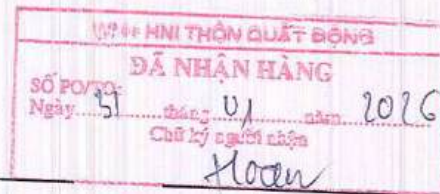 HNI THÔN QUẤT ĐỘNG
ĐÃ NHẬN HÀNG
SỐ PO/TO:
Ngày 31 tháng 01 năm 2026
Chữ ký người nhận
Hoan